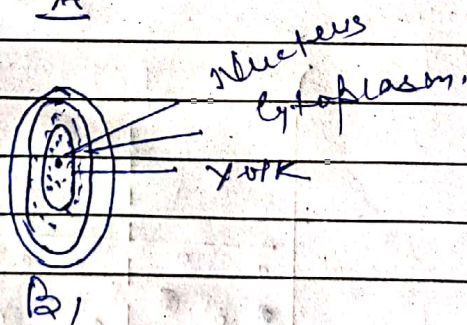 A
Nucleus
Cytoplasm.
Yolk
B,